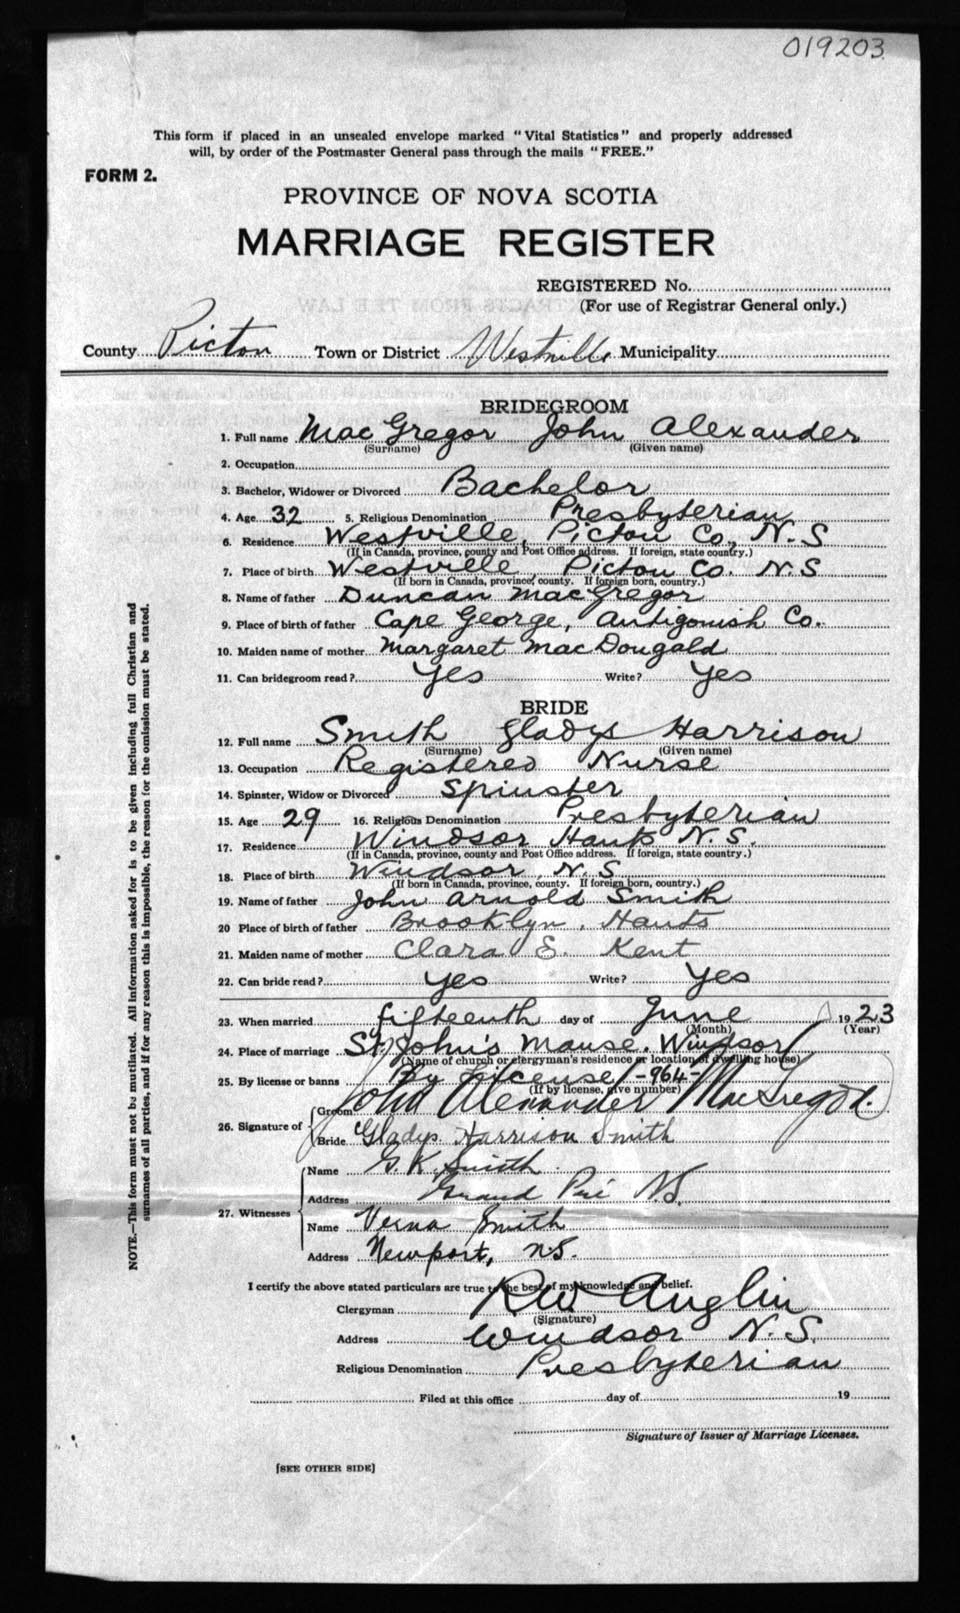 019203
This form if placed in an unsealed envelope marked "Vital Statistics" and properly addressed
will, by order of the Postmaster General pass through the mails "FREE."
FORM 2.
PROVINCE OF NOVA SCOTIA
MARRIAGE REGISTER
REGISTERED No.
(For use of Registrar General only.)
County Pictou Town or District Westville Municipality
BRIDEGROOM
1. Full name MacGregor John Alexander
(Surname) (Given name)
2. Occupation
3. Bachelor, Widower or Divorced Bachelor
4. Age 32 5. Religious Denomination Presbyterian
6. Residence Westville, Pictou Co., N.S
(If in Canada, province, county and Post Office address. If foreign, state country.)
7. Place of birth Westville, Pictou Co. N.S
(If born in Canada, province, county. If foreign born, country.)
8. Name of father Duncan MacGregor
9. Place of birth of father Cape George, Antigonish Co.
10. Maiden name of mother Margaret MacDougald
11. Can bridegroom read? Yes Write? Yes
BRIDE
12. Full name Smith Gladys Harrison
(Surname) (Given name)
13. Occupation Registered Nurse
14. Spinster, Widow or Divorced Spinster
15. Age 29 16. Religious Denomination Presbyterian
17. Residence Windsor Hants N.S.
(If in Canada, province, county and Post Office address. If foreign, state country.)
18. Place of birth Windsor, N.S
(If born in Canada, province, county. If foreign born, country.)
19. Name of father John Arnold Smith
20 Place of birth of father Brooklyn, Hants
21. Maiden name of mother Clara E. Kent
22. Can bride read? Yes Write? Yes
23. When married fifteenth day of June 1923
(Month) (Year)
24. Place of marriage St John's Manse. Windsor
(Name of church or clergyman's residence or location of dwelling house)
25. By license or banns By License -964-
(If by license, give number)
26. Signature of Groom John Alexander MacGregor.
Bride Gladys Harrison Smith
27. Witnesses Name G. K. Smith
Address Grand Pré NS.
Name Verna Smith
Address Newport, N.S.
I certify the above stated particulars are true to the best of my knowledge and belief.
Clergyman RW Anglin
(Signature)
Address Windsor N.S.
Religious Denomination Presbyterian
Filed at this office day of 19
Signature of Issuer of Marriage Licenses.
[SEE OTHER SIDE]
NOTE.—This form must not be mutilated. All information asked for is to be given including full Christian and
surnames of all parties, and if for any reason this is impossible, the reason for the omission must be stated.